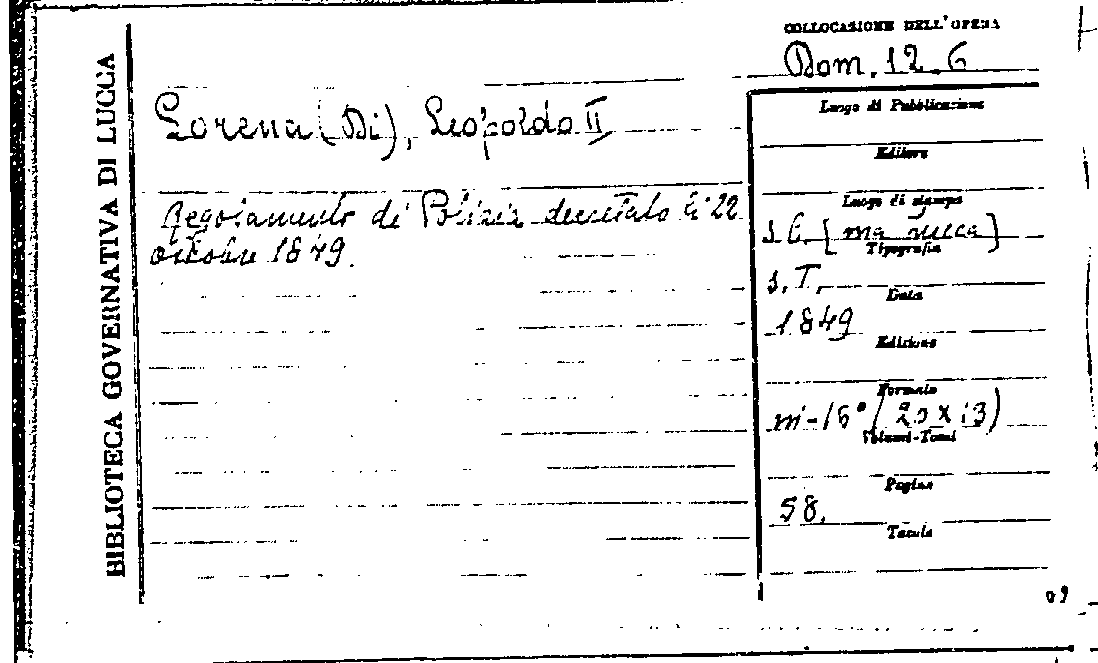 BIBLIOTECA GOVERNATIVA DI LUCCA
COLLOCASIONE DELL'OPERA
Dom. 12. 6
Lorena (Di), Leopoldo II
Regolamento di Polizia decretato li 22
ottobre 1849.
Luogo di Pubblicazione
Editore
Luogo di stampa
s. l. [ma Lucca]
Tipografia
s. T.
Data
1849
Edizione
Formato
in-16° (20 x 13)
Volumi-Tomi
Pagine
58.
Tavole